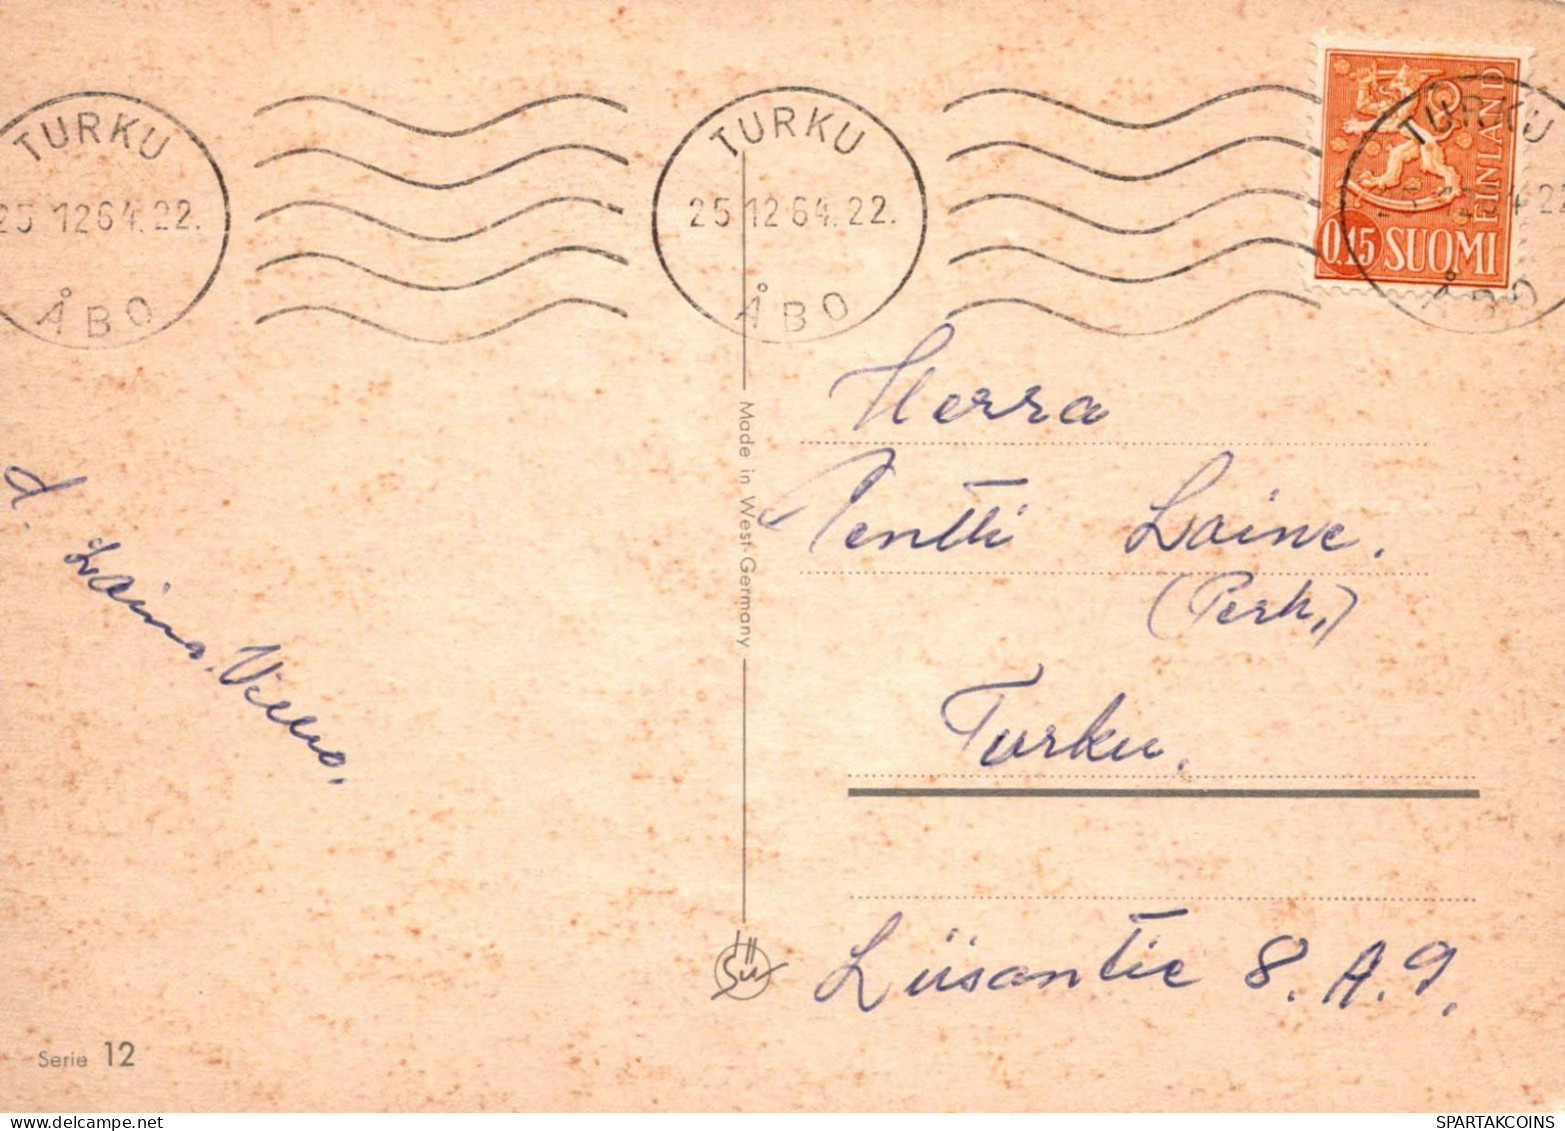 TURKU
25 12 64. 22.
ÅBO
TURKU
25 12 64. 22.
ÅBO
TURKU
ÅBO
FINLAND
0,15 SUOMI
Herra
Pentti Laine.
(Perh.)
Turku.
Liisantie 8. A. 9.
d. Laina, Veikko.
Made in West-Germany
Sü
Serie 12
SPARTAKCOINS